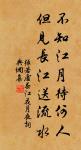 不知江月待何人
但見長江送流水
張若虛春江花月夜